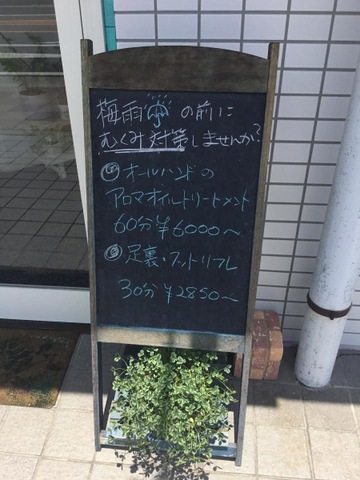 梅雨の前に
むくみ対策しませんか?
オールハンドの
アロマオイルトリートメント
60分¥6000〜
足裏・フットリフレ
30分¥2850〜